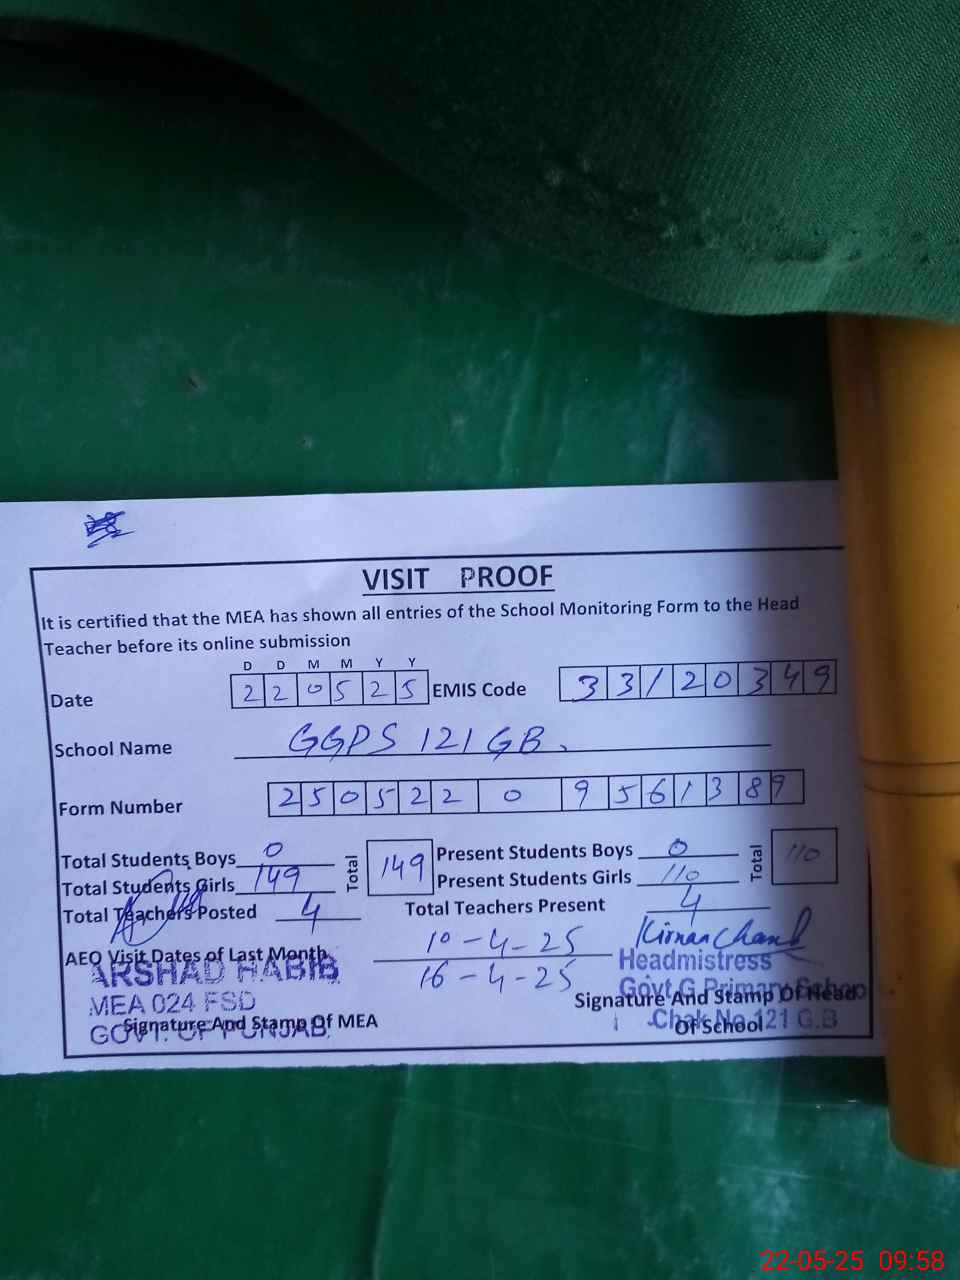 VISIT PROOF
It is certified that the MEA has shown all entries of the School Monitoring Form to the Head
Teacher before its online submission
D D M M Y Y
Date 2 2 0 5 2 5 EMIS Code 3 3 1 2 0 3 4 9
School Name GGPS 121 GB.
Form Number 2 5 0 5 2 2 0 9 5 6 1 3 8 9
Total Students Boys 0 Total 149 Present Students Boys 0 Total 110
Total Students Girls 149 Present Students Girls 110
Total Teachers Posted 4 Total Teachers Present 4
AEO Visit Dates of Last Month 10-4-25
16-4-25
Kiran Chand
ARSHAD HABIB
MEA 024 FSD
GOVT. OF PUNJAB.
Signature And Stamp Of MEA
Headmistress
Govt G Primary School
Chak No 121 G.B
Signature And Stamp Of Head
Of School
22-05-25 09:58